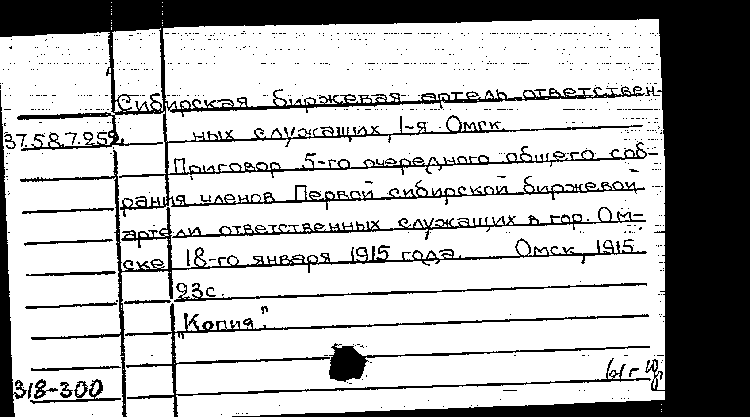 Сибирская биржевая артель ответствен-
37.58.7.259. ных служащих, 1-я. Омск.
Приговор 5-го очередного общего соб-
рания членов Первой сибирской биржевой
артели ответственных служащих в гор. Ом-
ске 18-го января 1915 года. Омск, 1915.
23с.
"Копия".
318-300